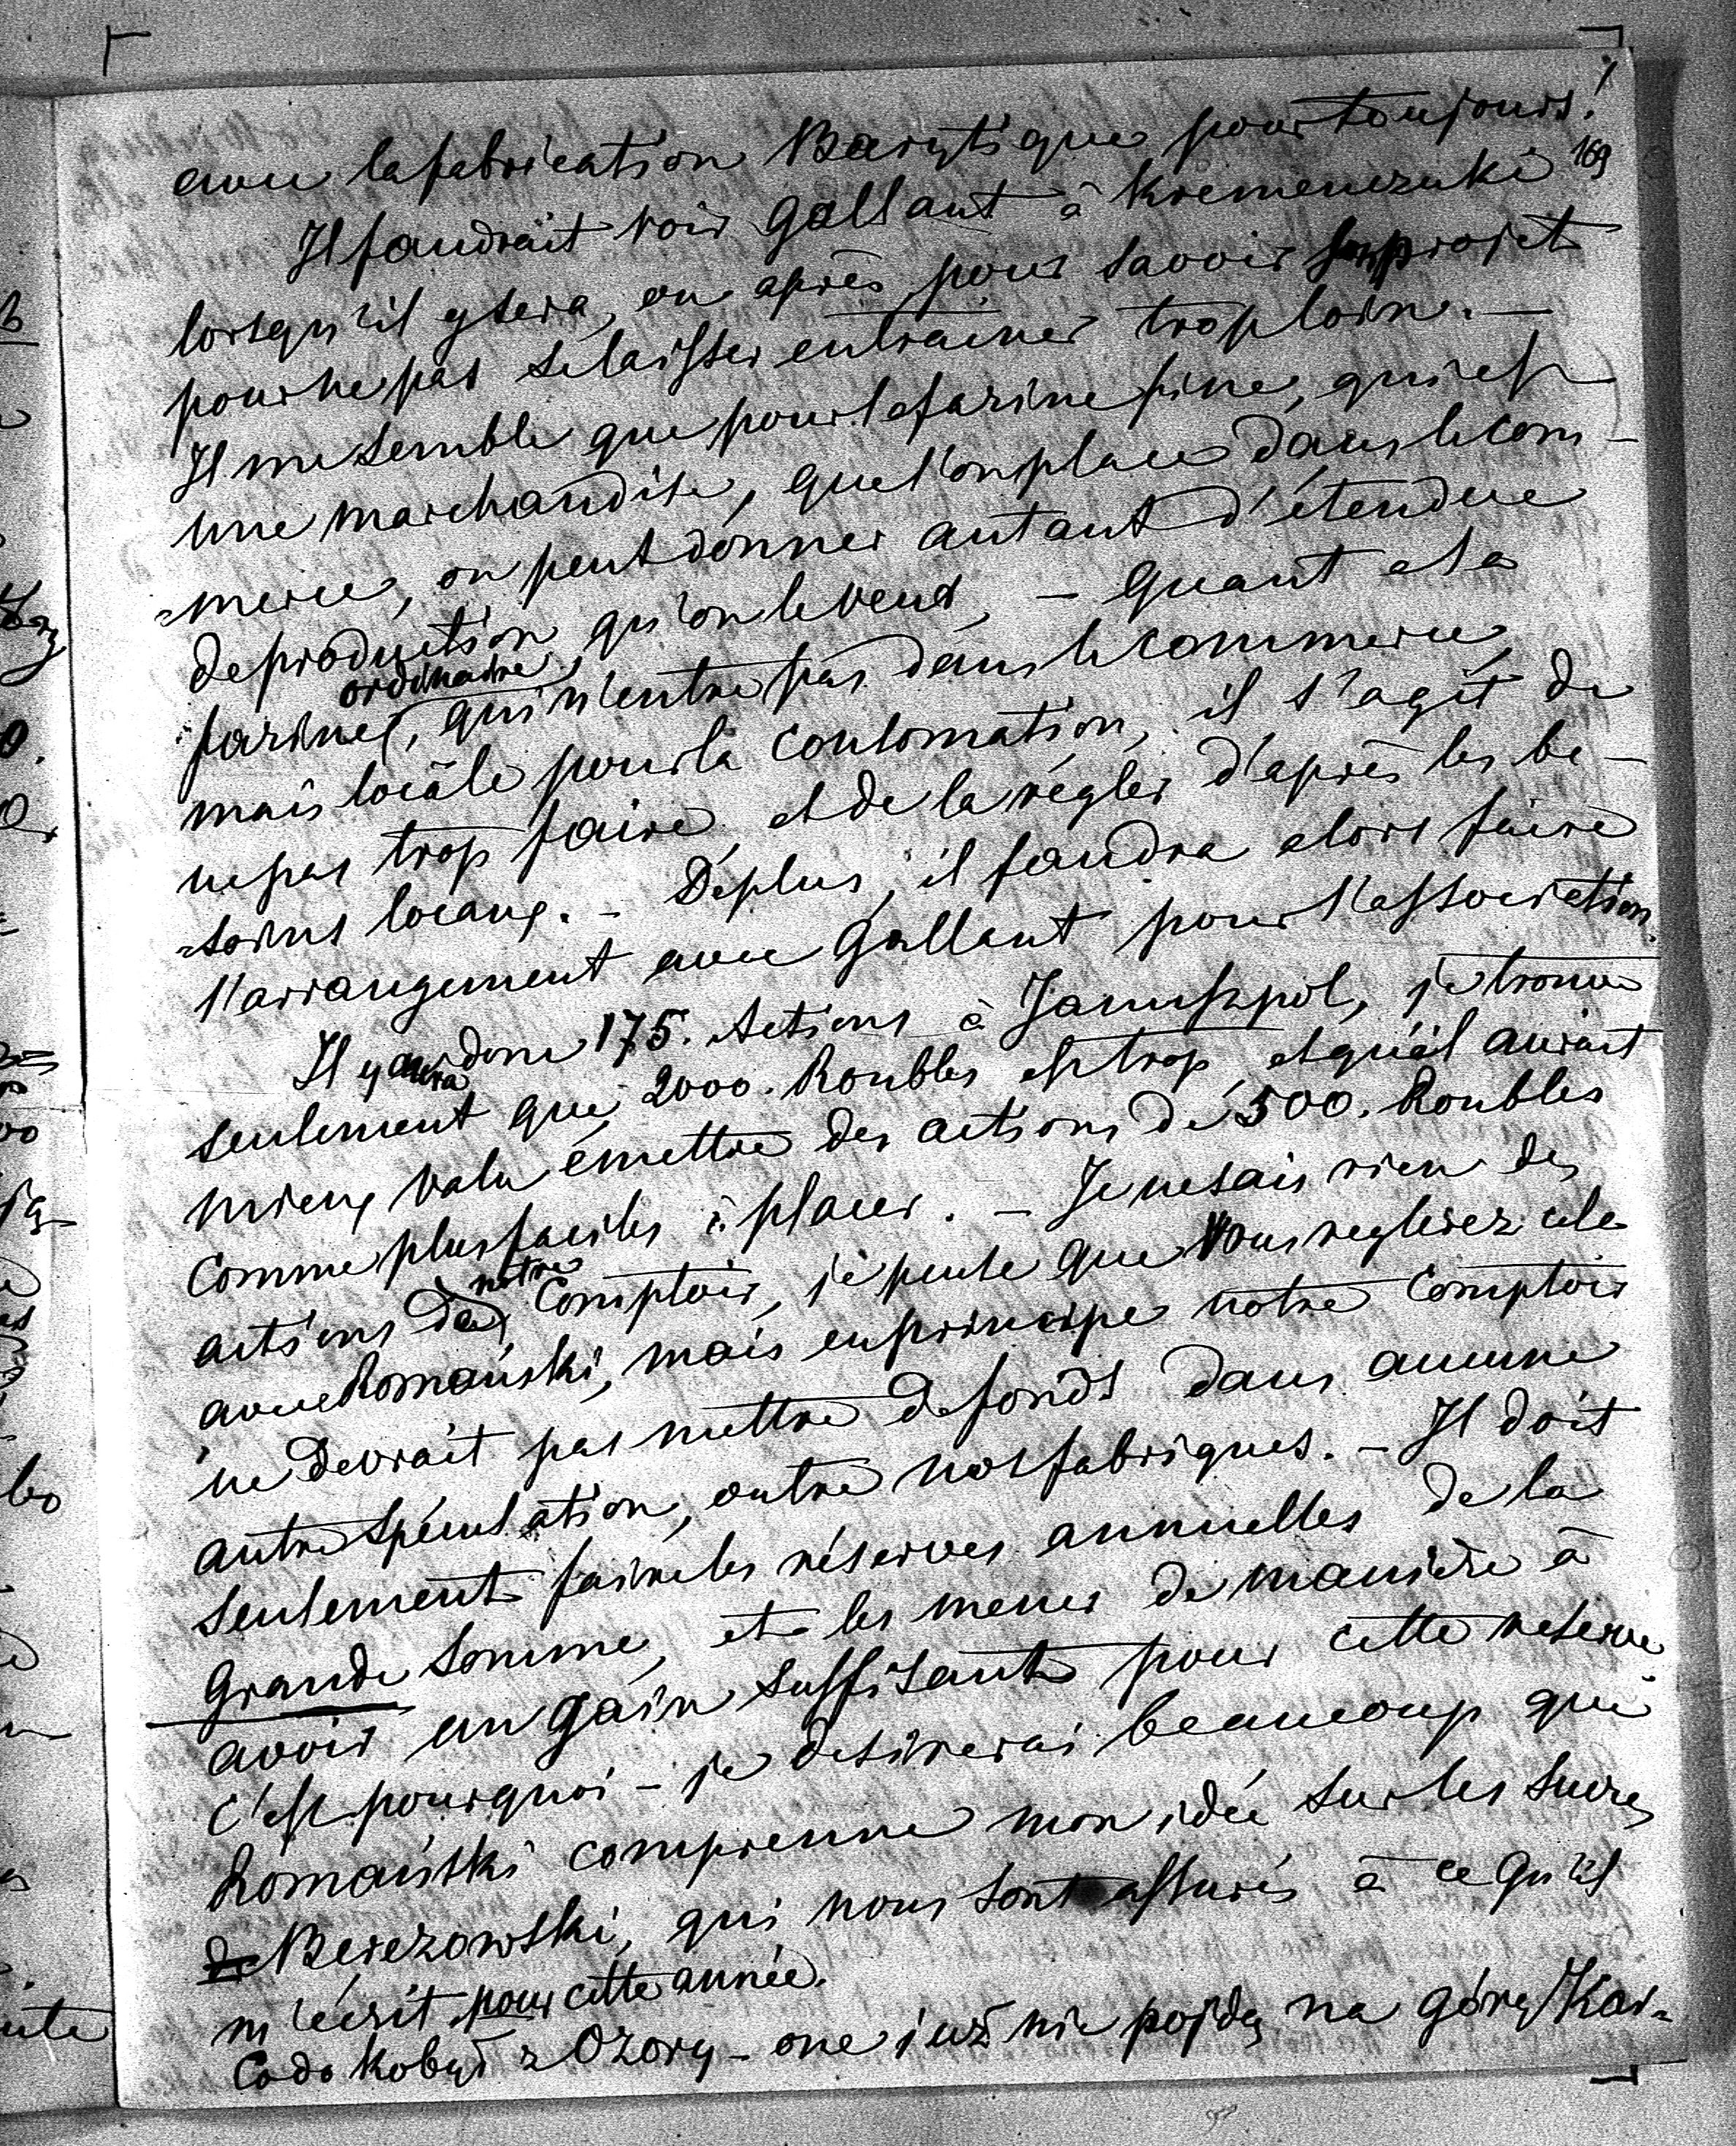 avec la fabrication Barytique pour toujours!
169
Il faudrait voir Gallant à Kremenczuki
lorsqu'il y sera, ou après, pour savoir son projet
pour ne pas se laisser entrainer trop loin. —
Il me semble que pour la farine fine, qui est
une marchandise, que l'on place dans le com-
-merce, on peut donner autant d'étendue
de production qu'on le veut, — Quant à la
farine ordinaire, qui n'entre pas dans le commerce,
mais locale pour la consomation, il s'agit de
ne pas trop faire, et de la régler d'après les be-
-soins locaux. — Déplus, il faudra alors faire
l'arrangement avec Gallant pour l'association.
Il y aura donc 175. Actions à Januszpol, je trouve
seulement que 2000. Roubles est trop, et qu'il aurait
mieux valu émettre des actions de 500. Roubles
comme plus faciles à placer. — Je ne sais rien des
actions de notre Comptoir, je pense que Vous reglerez cela
avec Romański, mais en principe notre Comptoir
ne devrait pas mettre de fonds dans aucune
autre spéculation, outre nos fabriques. — Il doit
seulement faire les réserves annuelles de la
grande somme, et les mener de manière à
avoir un gain suffisant pour cette reserve.
c'est pourquoi — je desirerai beaucoup que
Romański comprenne mon idée sur les sucres
de Berezowski, qui nous sont assurés à ce qu'il
m'écrit pour cette année.
Co do Kobył z Ozory — one już nie pójdą na górę Kar-